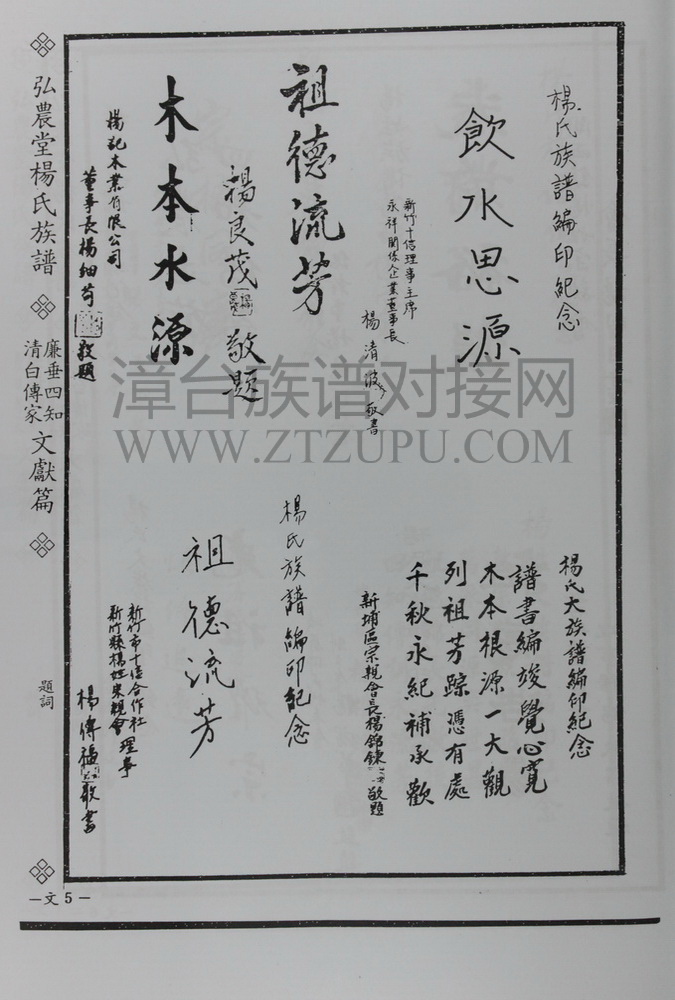 楊氏族譜編印紀念
飲水思源
新竹十信理事主席
永祥關係企業董事長
楊清波敬書
祖德流芳
楊良茂
敬題
木本水源
楊記木業有限公司
董事長楊細苟
敬題
楊氏大族譜編印紀念
譜書編竣覺心寬
木本根源一大觀
列祖芳踪憑有處
千秋永紀補承歡
新埔區宗親會長楊錦鍊
敬題
楊氏族譜編印紀念
祖德流芳
新竹市十信合作社
新竹縣楊姓宗親會理事
楊傳福
敬書
弘農堂楊氏族譜
廉垂四知
清白傳家
文獻篇
題詞
—文5—
漳台族谱对接网
WWW.ZTZUPU.COM